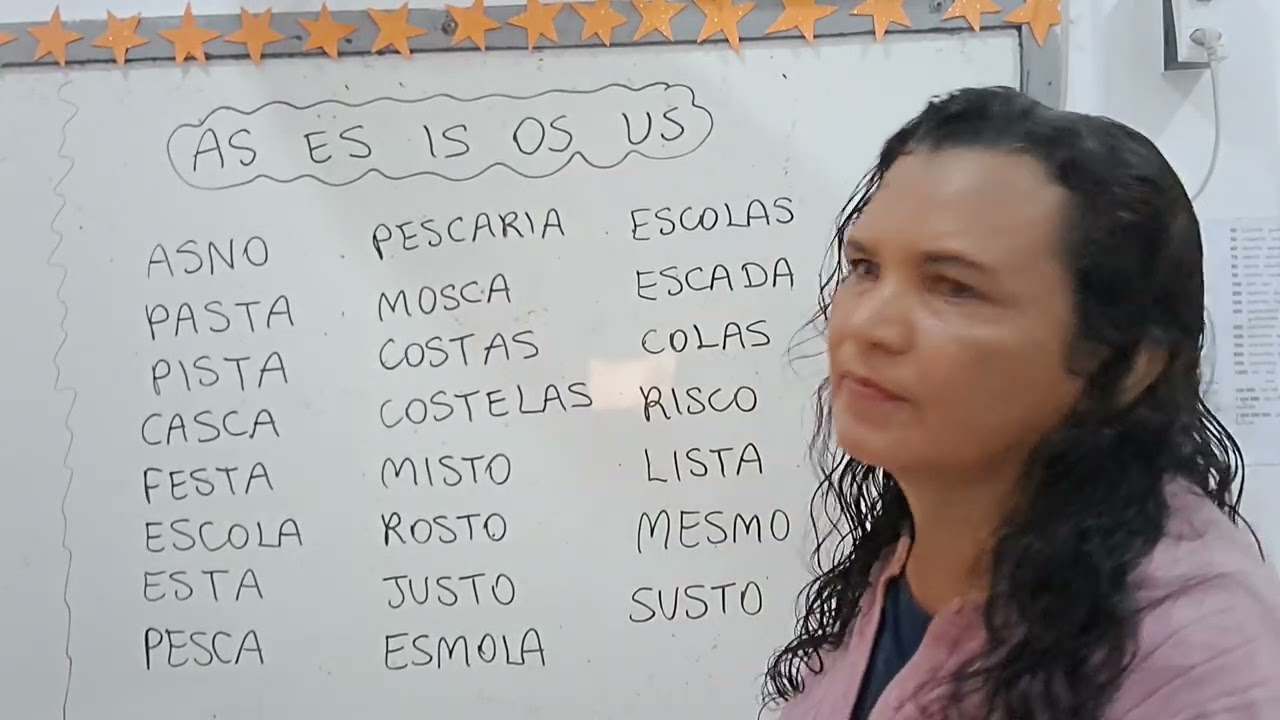 AS ES IS OS US
ASNO
PASTA
PISTA
CASCA
FESTA
ESCOLA
ESTA
PESCA
PESCARIA
MOSCA
COSTAS
COSTELAS
MISTO
ROSTO
JUSTO
ESMOLA
ESCOLAS
ESCADA
COLAS
RISCO
LISTA
MESMO
SUSTO